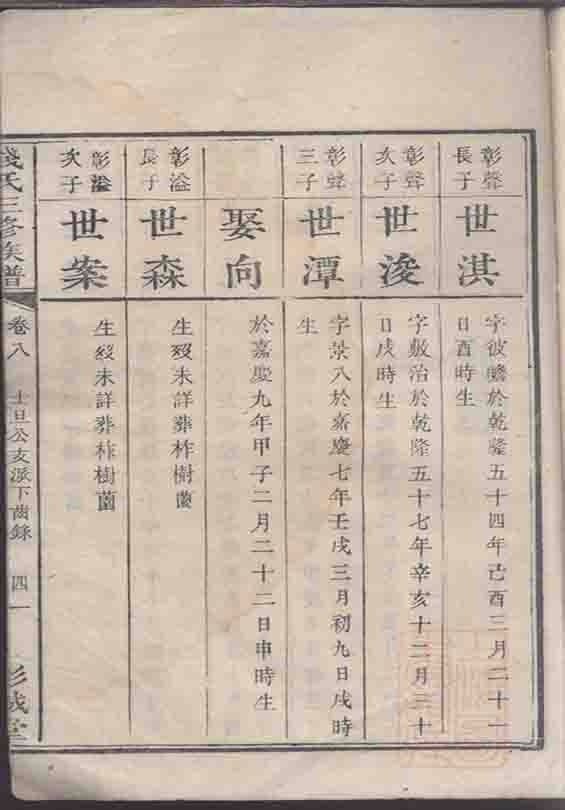 彰聲
長子
世淇
字彼瞻於乾隆五十四年己酉二月二十一
日酉時生
彰聲
次子
世浚
字敷治於乾隆五十七年辛亥十二月三十
日戌時生
彰聲
三子
世潭
字景八於嘉慶七年壬戌三月初九日戌時
生
娶向
於嘉慶九年甲子二月二十二日申時生
彰溢
長子
世森
生歿未詳葬柞樹
彰溢
次子
世案
生歿未詳葬柞樹
錢氏三修族譜
卷八
士旦公支派下齒錄
四一
彭城堂